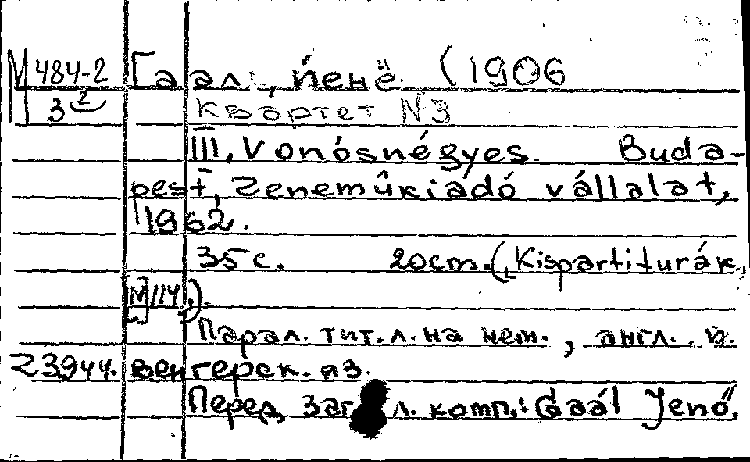 М 484-2 Гаал, Йенё (1906
3 2 Квартет N3
III. Vonósnégyes. Buda-
pest, Zenemûkiadó vállalat,
1962.
35 с. 20cm. (Kispartiturák,
М/114.).
Парал. тит. л. на нем., англ. и
23944. венгерск. яз.
Перед загл. комп.: Gaál Jenő.